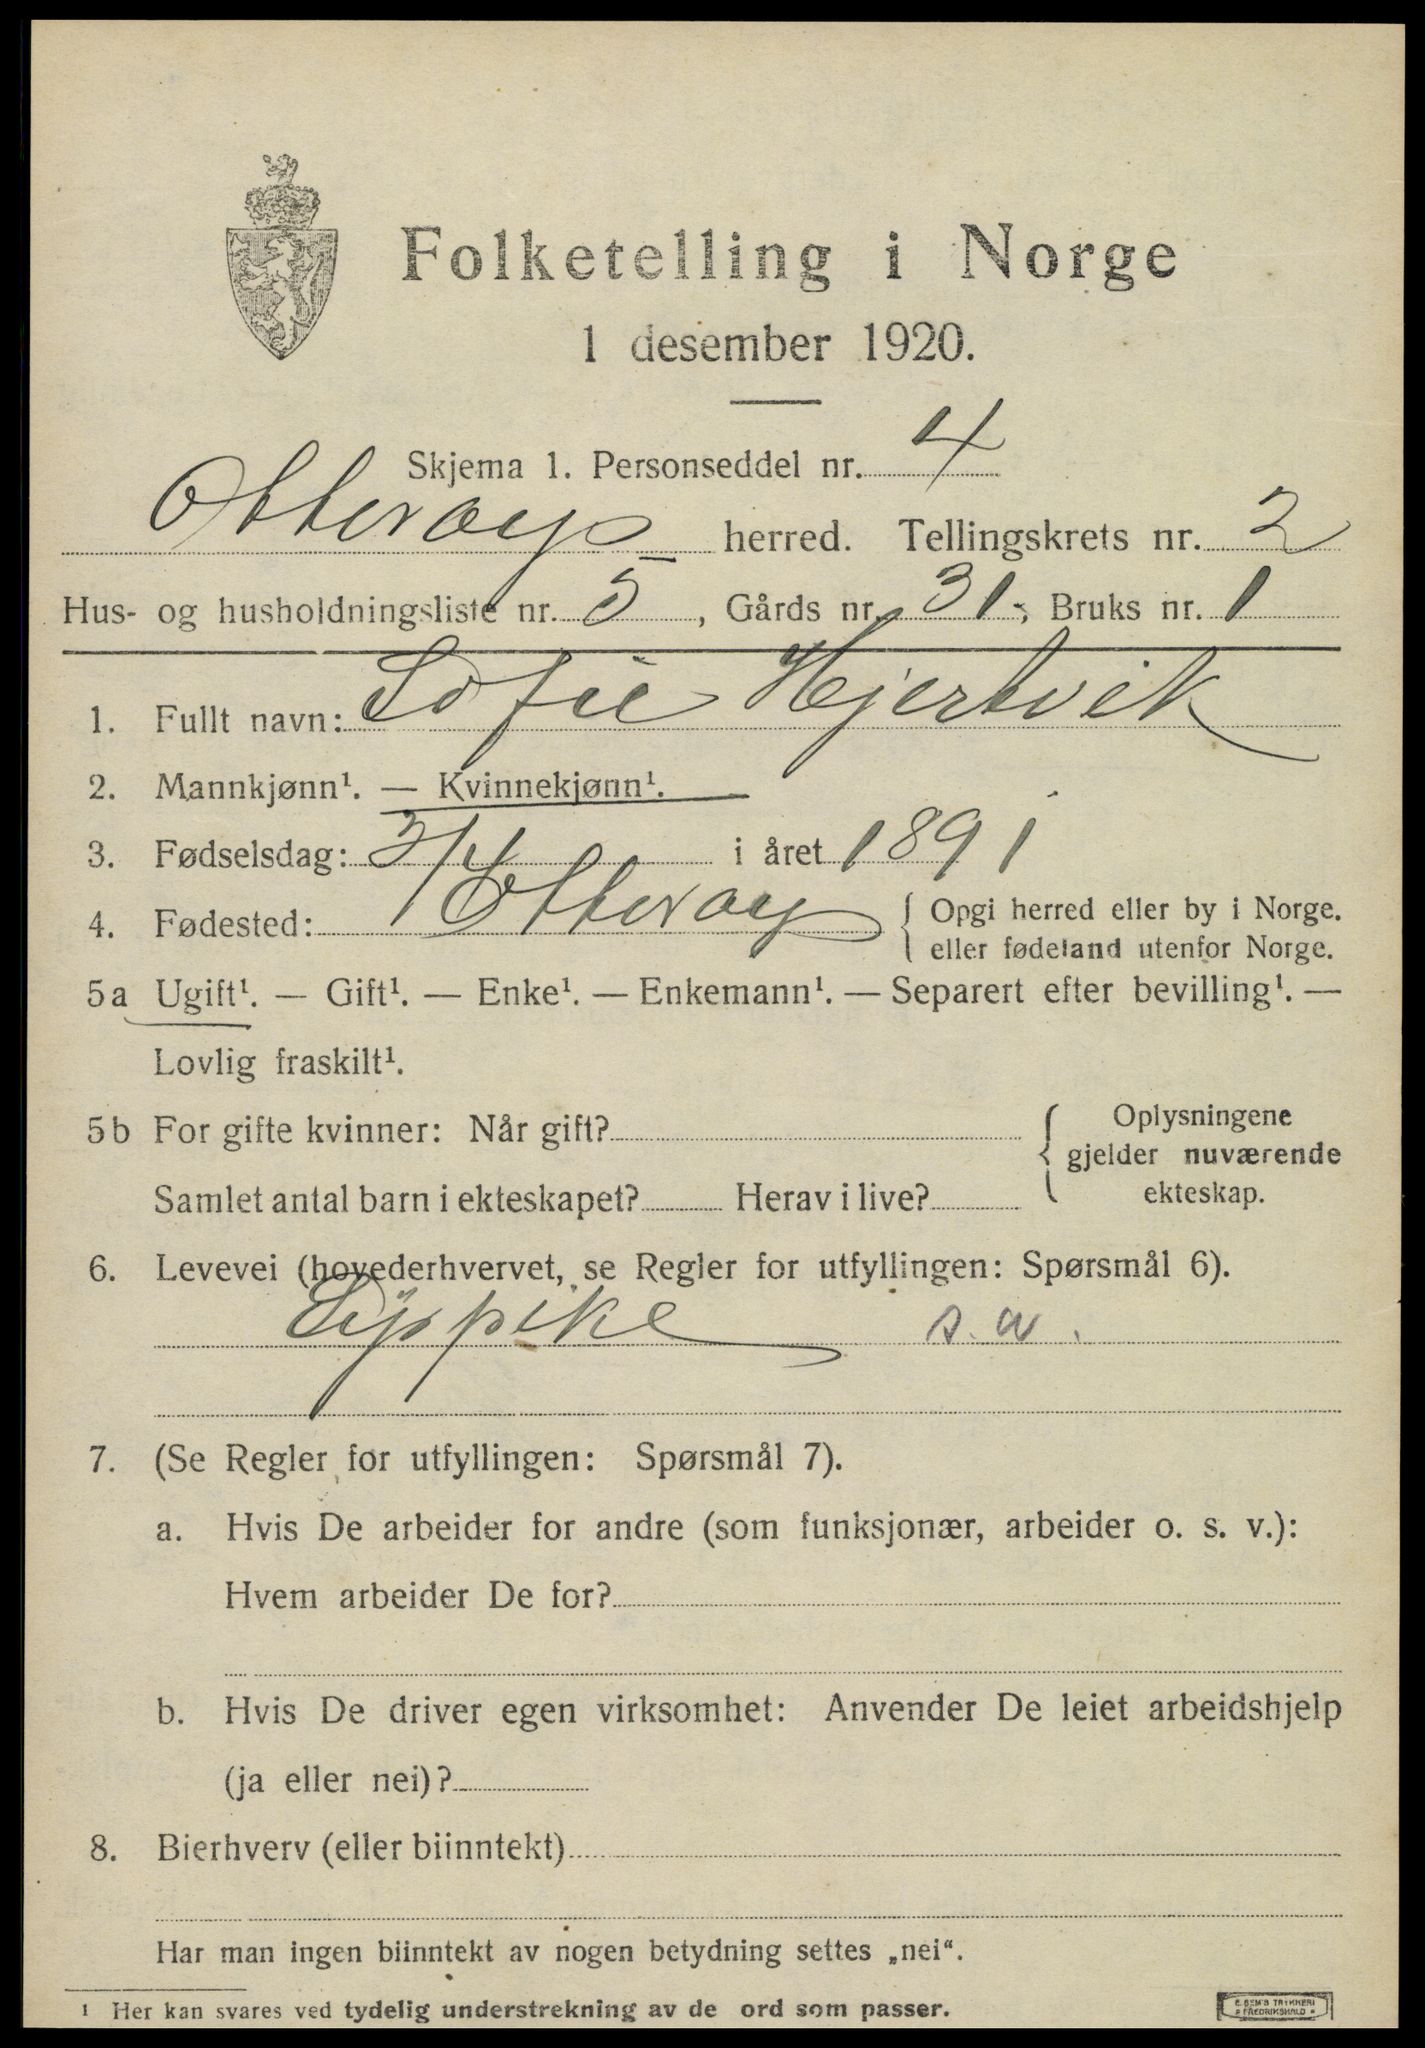 Folketelling i Norge
1 desember 1920.
Skjema 1. Personseddel nr. 4
Otterøys herred. Tellingskrets nr. 2
Hus- og husholdningsliste nr. 5, Gårds nr. 31, Bruks nr. 1
1. Fullt navn: Sofie Hjertvik
2. Mannkjønn¹. — Kvinnekjønn¹.
3. Fødselsdag: 3/4 i året 1891
4. Fødested: Otterøy { Opgi herred eller by i Norge.
eller fødeland utenfor Norge.
5a Ugift¹. — Gift¹. — Enke¹. — Enkemann¹. — Separert efter bevilling¹. —
Lovlig fraskilt¹.
5b For gifte kvinner: Når gift? { Oplysningene
gjelder nuværende
Samlet antal barn i ekteskapet? Herav i live? ekteskap.
6. Levevei (hovederhvervet, se Regler for utfyllingen: Spørsmål 6).
Sypike s. a.
7. (Se Regler for utfyllingen: Spørsmål 7).
a. Hvis De arbeider for andre (som funksjonær, arbeider o. s. v.):
Hvem arbeider De for?
b. Hvis De driver egen virksomhet: Anvender De leiet arbeidshjelp
(ja eller nei)?
8. Bierhverv (eller biinntekt)
Har man ingen biinntekt av nogen betydning settes „nei“.
¹ Her kan svares ved tydelig understrekning av de ord som passer.
E. SEM'S TRYKKERI
FREDRIKSHALD